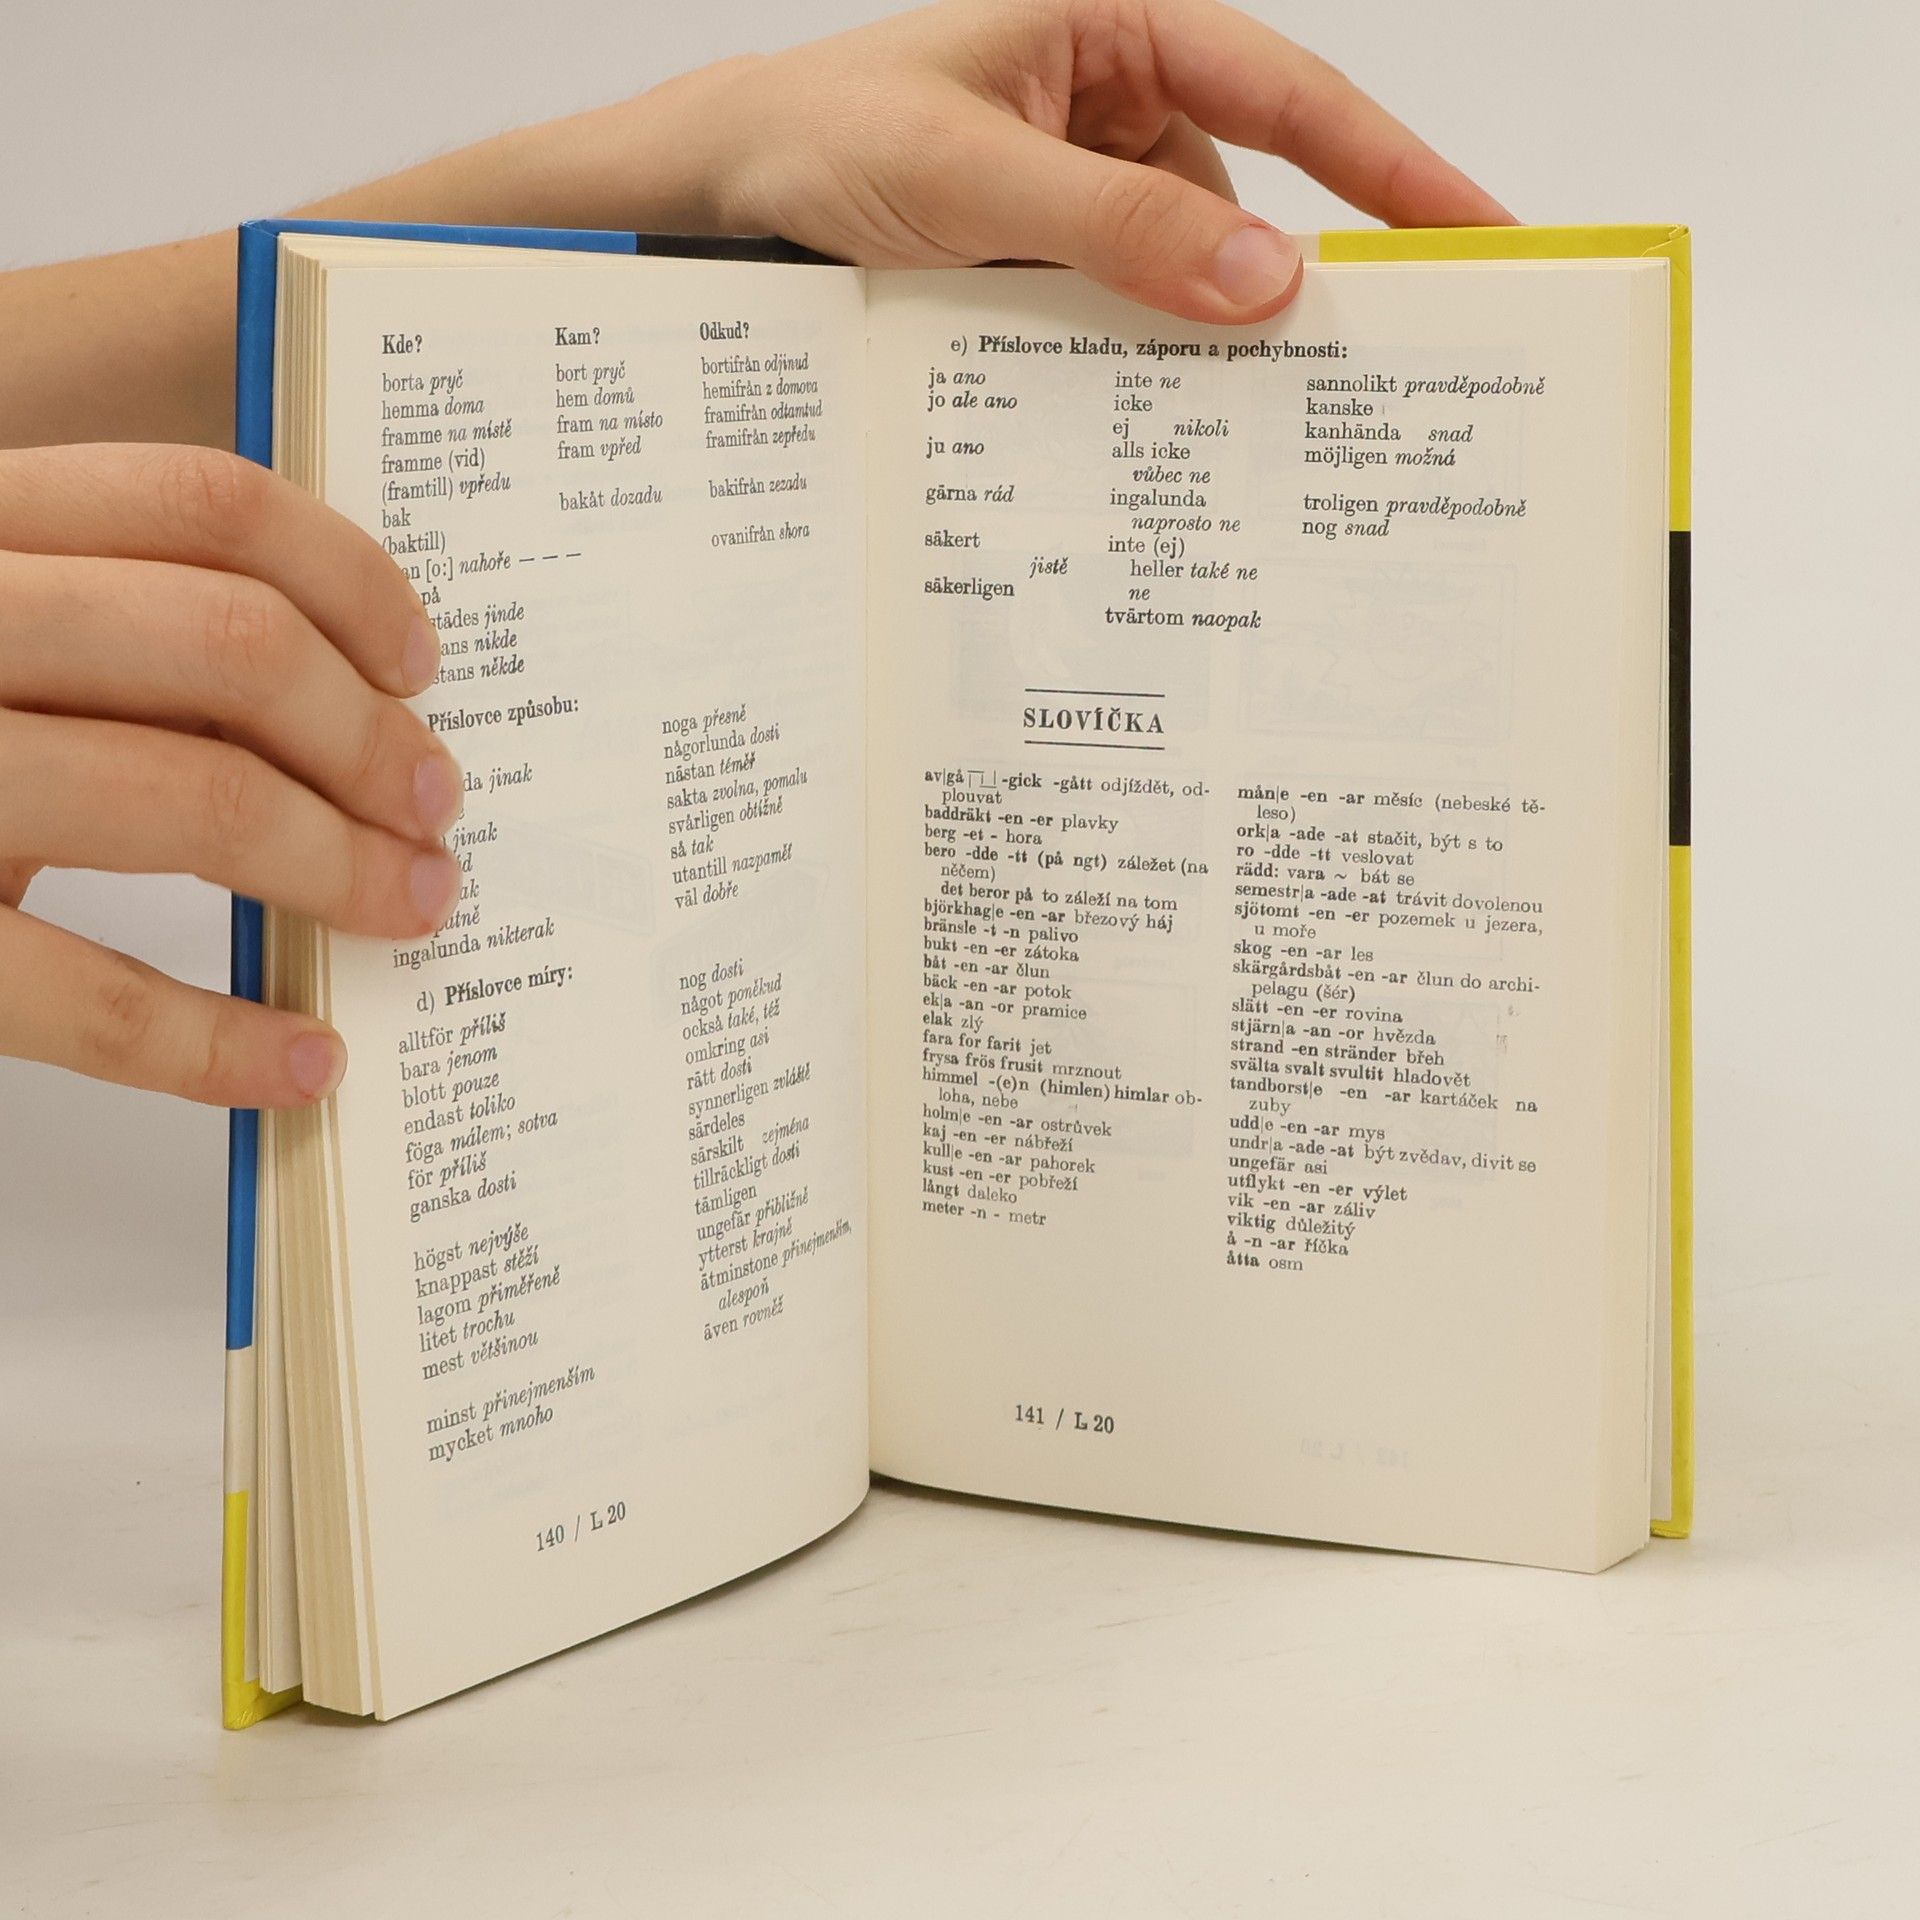 Kde? Kam? Odkud?
borta pryč bort pryč bortifrån odjinud
hemma doma hem domů hemifrån z domova
framme na místě fram na místo framifrån odtamtud
framme (vid) fram vpřed framifrån zepředu
(framtill) vpředu
bak bakåt dozadu bakifrån zezadu
(baktill)
an [o:] nahoře — — — ovanifrån shora
på
städes jinde
ans nikde
stans někde
Příslovce způsobu:
da jinak
jinak
ingalunda nikterak
noga přesně
någorlunda dosti
nästan téměř
sakta zvolna, pomalu
svårligen obtížně
så tak
utantill nazpaměť
väl dobře
d) Příslovce míry:
alltför příliš
bara jenom
blott pouze
endast toliko
föga málem; sotva
för příliš
ganska dosti
högst nejvýše
knappast stěží
lagom přiměřeně
litet trochu
mest většinou
minst přinejmenším
mycket mnoho
nog dosti
något poněkud
också také, též
omkring asi
rätt dosti
synnerligen zvláště
särdeles
särskilt zejména
tillräckligt dosti
tämligen
ungefär přibližně
ytterst krajně
åtminstone přinejmenším,
alespoň
även rovněž
140 / L 20
e) Příslovce kladu, záporu a pochybnosti:
ja ano inte ne sannolikt pravděpodobně
jo ale ano icke kanske
ej nikoli kanhända snad
ju ano alls icke möjligen možná
vůbec ne
gärna rád ingalunda troligen pravděpodobně
naprosto ne nog snad
säkert inte (ej)
jistě heller také ne
säkerligen ne
tvärtom naopak
SLOVÍČKA
av|gå -gick -gått odjíždět, od-
plouvat
baddräkt -en -er plavky
berg -et - hora
bero -dde -tt (på ngt) záležet (na
něčem)
det beror på to záleží na tom
björkhag|e -en -ar březový háj
bränsle -t -n palivo
bukt -en -er zátoka
båt -en -ar člun
bäck -en -ar potok
ek|a -an -or pramice
elak zlý
fara for farit jet
frysa frös frusit mrznout
himmel -(e)n (himlen) himlar ob-
loha, nebe
holm|e -en -ar ostrůvek
kaj -en -er nábřeží
kull|e -en -ar pahorek
kust -en -er pobřeží
långt daleko
meter -n - metr
mån|e -en -ar měsíc (nebeské tě-
leso)
ork|a -ade -at stačit, být s to
ro -dde -tt veslovat
rädd: vara ~ bát se
semestr|a -ade -at trávit dovolenou
sjötomt -en -er pozemek u jezera,
u moře
skog -en -ar les
skärgårdsbåt -en -ar člun do archi-
pelagu (šér)
slätt -en -er rovina
stjärn|a -an -or hvězda
strand -en stränder břeh
svälta svalt svultit hladovět
tandborst|e -en -ar kartáček na
zuby
udd|e -en -ar mys
undr|a -ade -at být zvědav, divit se
ungefär asi
utflykt -en -er výlet
vik -en -ar záliv
viktig důležitý
å -n -ar říčka
åtta osm
141 / L 20